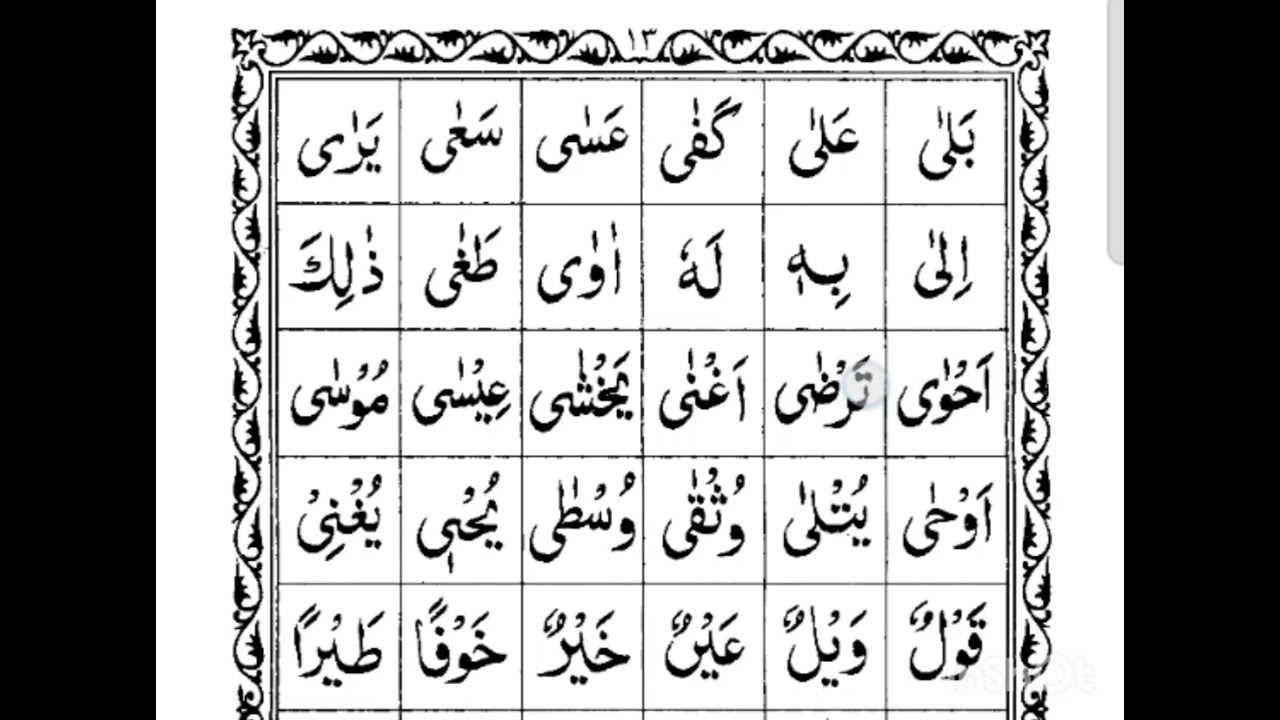 ١٣
بَلٰى عَلٰى كَفٰى عَسٰى سَعٰى يَرٰى
اِلٰى بِهٖ لَهٗ اٰوٰى طَغٰى ذٰلِكَ
اَحْوٰى تَرْضٰى اَغْنٰى يَخْشٰى عِيْسٰى مُوْسٰى
اَوْحٰى يُتْلٰى وُثْقٰى وُسْطٰى يُحْيٖ يُغْنِيْ
قَوْلٌ وَيْلٌ عَيْنٌ خَيْرٌ خَوْفًا طَيْرًا
InShOt